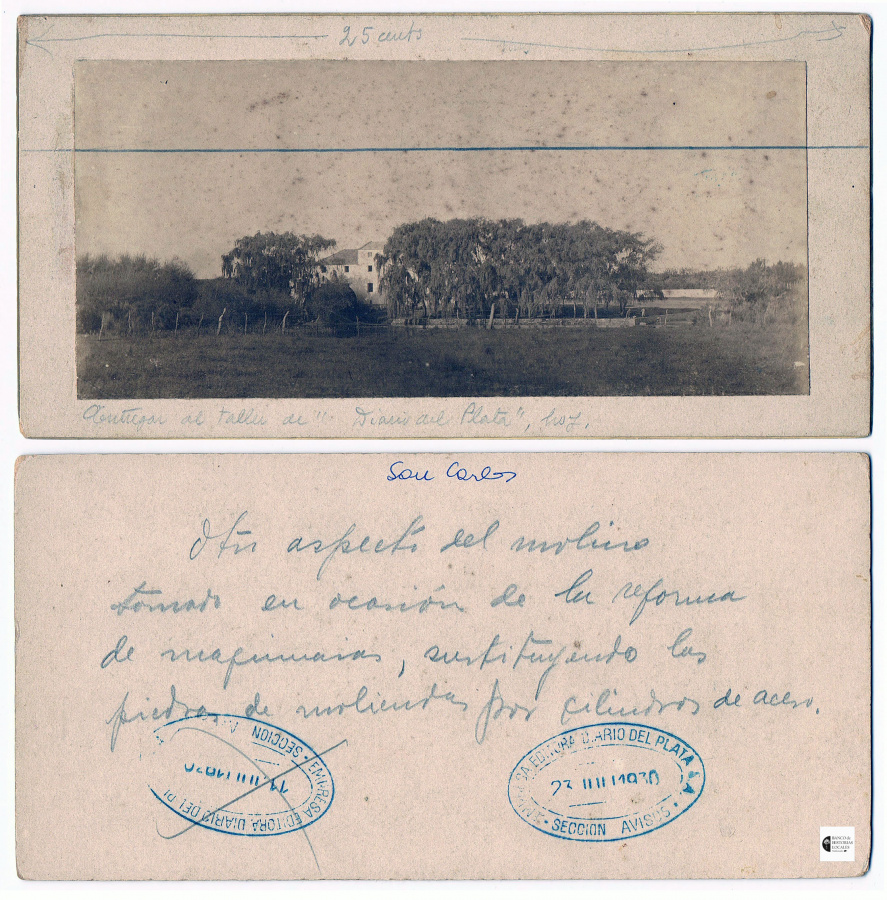 25 cents
Entregar al taller de "Diario del Plata", hoy.
San Carlos
Otro aspecto del molino
tomado en ocasión de la reforma
de maquinarias, sustituyendo las
piedras de moliendas por cilindros de acero.
EMPRESA EDITORA DIARIO DEL PL
SECCION
EMPRESA EDITORA DIARIO DEL PLATA S.A.
SECCION AVISOS
BANCO de
HISTORIAS
LOCALES